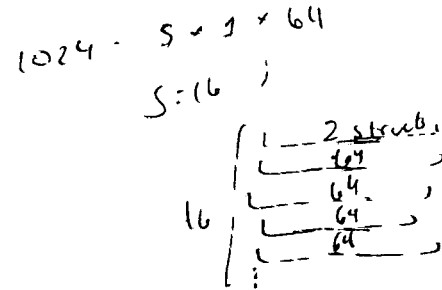 1024 - S * 1 * 64
S = 16 ;
2 structs
64
64
16
64
64